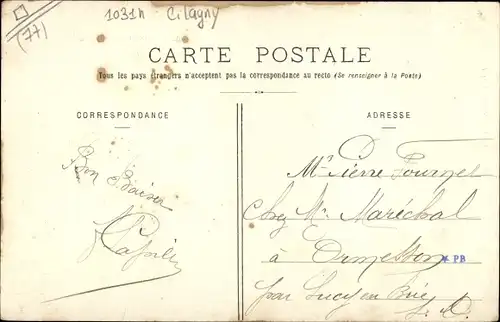 (77)
1031h Citagny
CARTE POSTALE
Tous les pays étrangers n'acceptent pas la correspondance au recto (Se renseigner à la Poste)
CORRESPONDANCE
ADRESSE
Bon Baiser
Mr Pierre Fournet
Chez Mr Maréchal
à Ormesson
* PB
par Sucy en Brie
S. O.